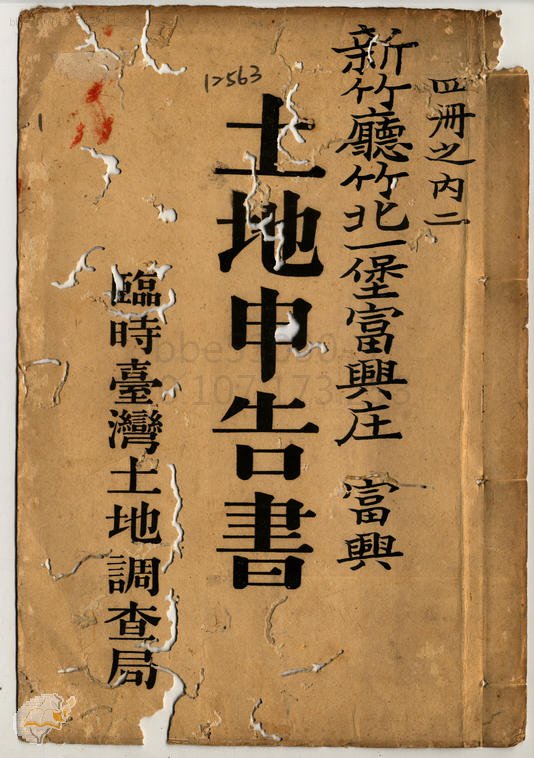 四冊之內二
新竹廳竹北一堡富興庄 富興
12563
土地申告書
臨時臺灣土地調查局